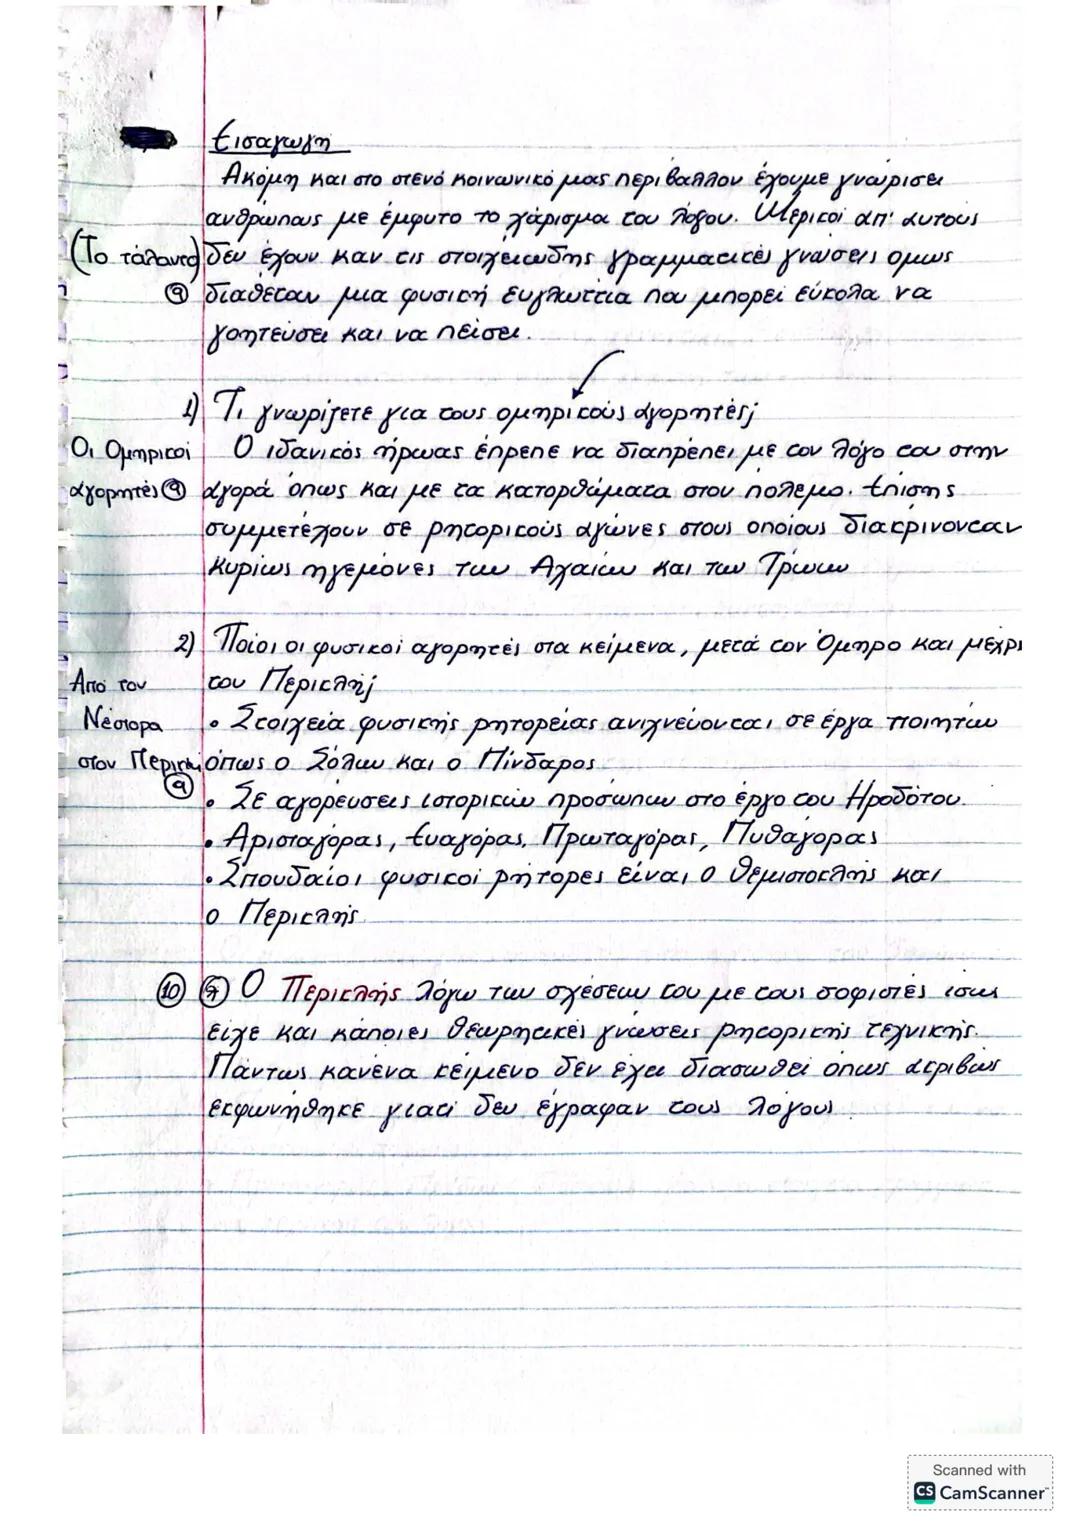 Εισαγωγή
Ακόμη και στο στενό κοινωνικό μας περιβαλλον έχουμε γνωρίσει
ανθρώπους με έμφυτο το χάρισμα του λόγου. Μερικοί απ' αυτούς
(Το τάλαντο) δεν έχουν καν τις στοιχειώδης γραμματικές γνώσεις ομως
9 διαθεταν μια φυσική ευγλωττια που μπορεί εύκολα να
γοητεύσει και να πείσει.
1) Τι γνωρίζετε για τους ομηρικούς αγορητές;
Οι Ομηρικοί Ο ιδανικός ήρωας έπρεπε να διαπρέπει με τον λόγο του στην
αγορητές 9 αγορά όπως και με τα κατορθώματα στον πολεμο. Επισης
συμμετέχουν σε ρητορικούς αγώνες στους οποίους διακρινονταν
κυρίως ηγεμόνες των Αχαιών και των Τρώων
2) Ποίοι οι φυσικοί αγορητές στα κείμενα, μετά τον Όμηρο και μέχρι
Από τον του Περικλή;
Νέστορα • Στοιχεία φυσικής ρητορείας ανιχνεύονται σε έργα ποιητών
στον Περικλή όπως ο Σόλων και ο Πίνδαρος
9 • Σε αγορεύσεις ιστορικών προσώπων στο έργο του Ηροδότου.
• Αρισταγόρας, Ευαγόρας, Πρωταγόρας, Πυθαγόρας
• Σπουδαίοι φυσικοί ρήτορες είναι ο Θεμιστοκλής και
ο Περικλής
10 Ο Περικλής λόγω των σχέσεων του με τους σοφιστές ισως
είχε και κάποιες θεωρητικές γνώσεις ρητορικής τεχνικής.
Πάντως κανένα κείμενο δεν έχει διασωθεί όπως ακριβώς
εκφωνήθηκε γιατί δεν έγραφαν τους λόγους.
Scanned with
CS CamScanner